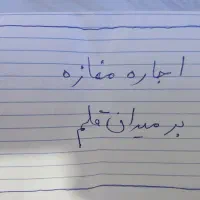 اجاره مغازه
بر میدان قلم